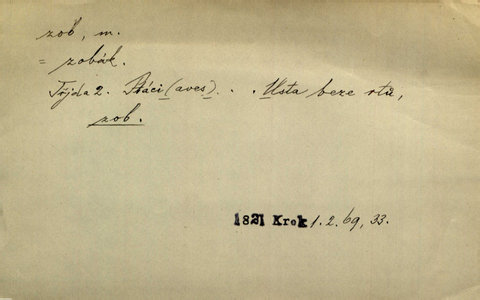 zob, m.
= zobák.
Třída 2. Ptáci (aves). . . Usta beze rtů,
zob.
1821 Krok 1. 2. 69, 33.